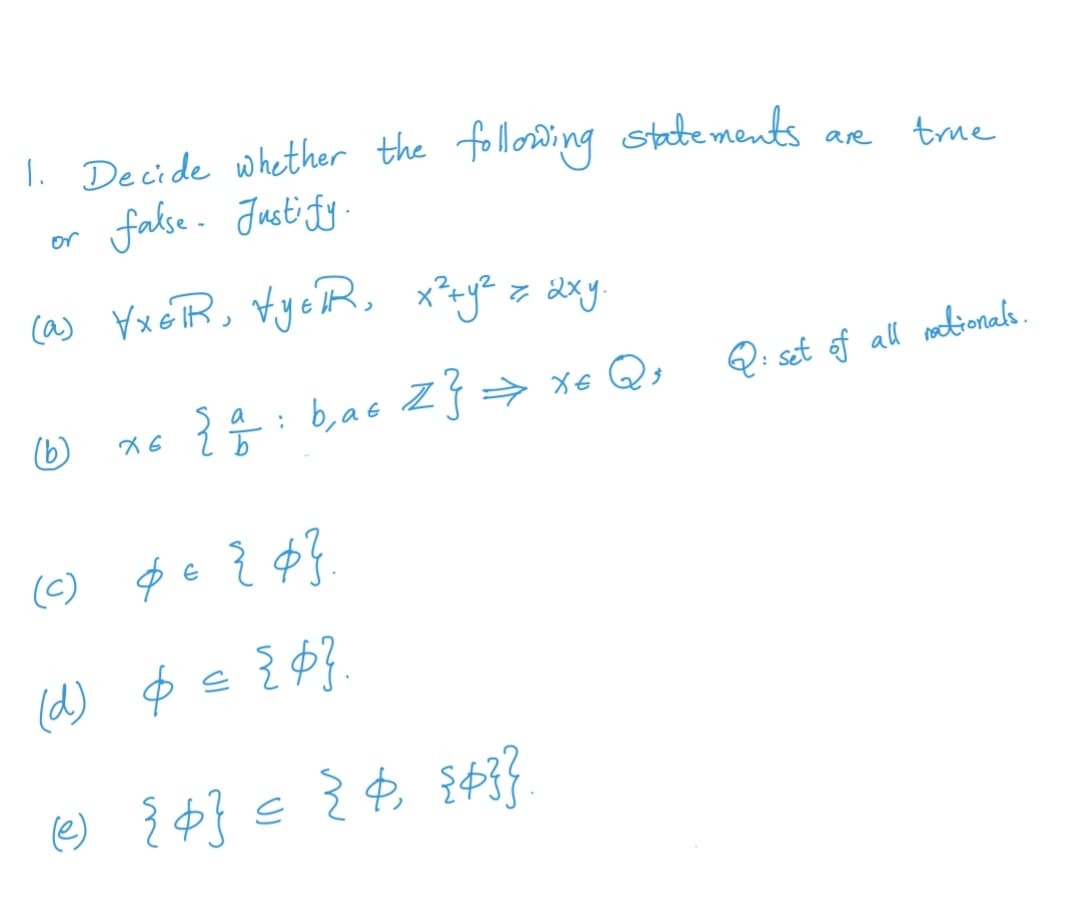 1. Decide whether the following statements are true
or false. Justify.
(a) ∀x∈ℝ, ∀y∈ℝ, x²+y² ≥ 2xy.
(b) x∈ {a/b : b,a∈ ℤ} ⇒ x∈ Q, Q: set of all rationals.
(c) ϕ ∈ {ϕ}.
(d) ϕ ⊆ {ϕ}.
(e) {ϕ} ⊆ {ϕ, {ϕ}}.